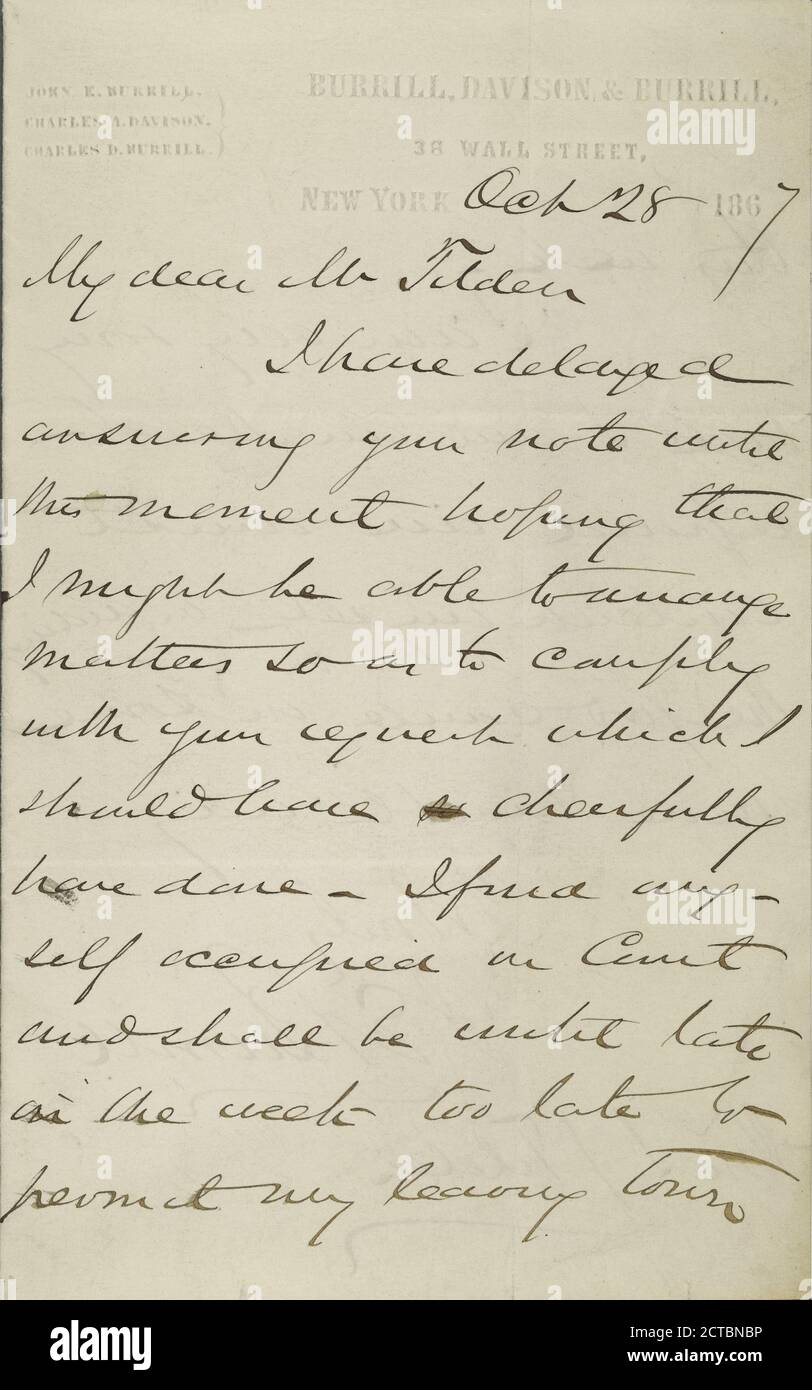 JOHN E. BURRILL.
CHARLES A. DAVISON.
CHARLES D. BURRILL.
BURRILL, DAVISON, & BURRILL,
38 WALL STREET,
NEW YORK Oct 28 1867
My dear Mr Tilden
I have delayed
answering your note until
this moment hoping that
I might be able to arrange
matters so as to comply
with your request which I
should have cheerfully
have done - I find my-
self occupied in Court
and shall be until late
in the week too late to
permit my leaving Town
alamy
Image ID: 2CTBNBP
www.alamy.com